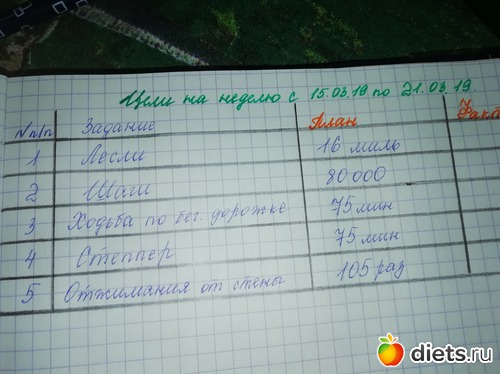 Цели на неделю с 15.03.19 по 21.03.19.
№п/п Задание План Факт
1 Лесли 16 миль
2 Шаги 80000
3 Ходьба по бег. дорожке 75 мин
4 Степпер 75 мин
5 Отжимания от стены 105 раз
diets.ru